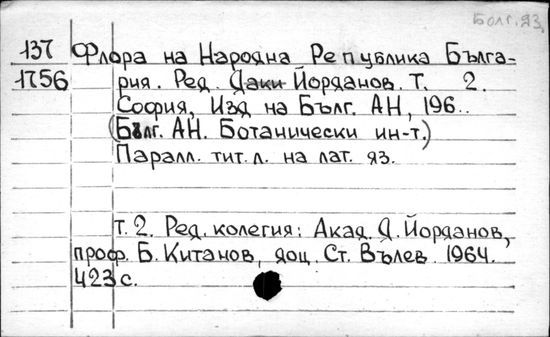 Болг. яз.
137 Флора на Народна Република Бълга-
1756 рия. Ред. Даки Йорданов. Т. 2.
София, Изд на Бълг. АН, 196..
(Бълг. АН. Ботанически ин-т.)
Паралл. тит. л. на лат. яз.
т. 2. Ред. колегия: Акад. Д. Йорданов,
проф. Б. Китанов, доц. Ст. Вълев. 1964.
423 с.